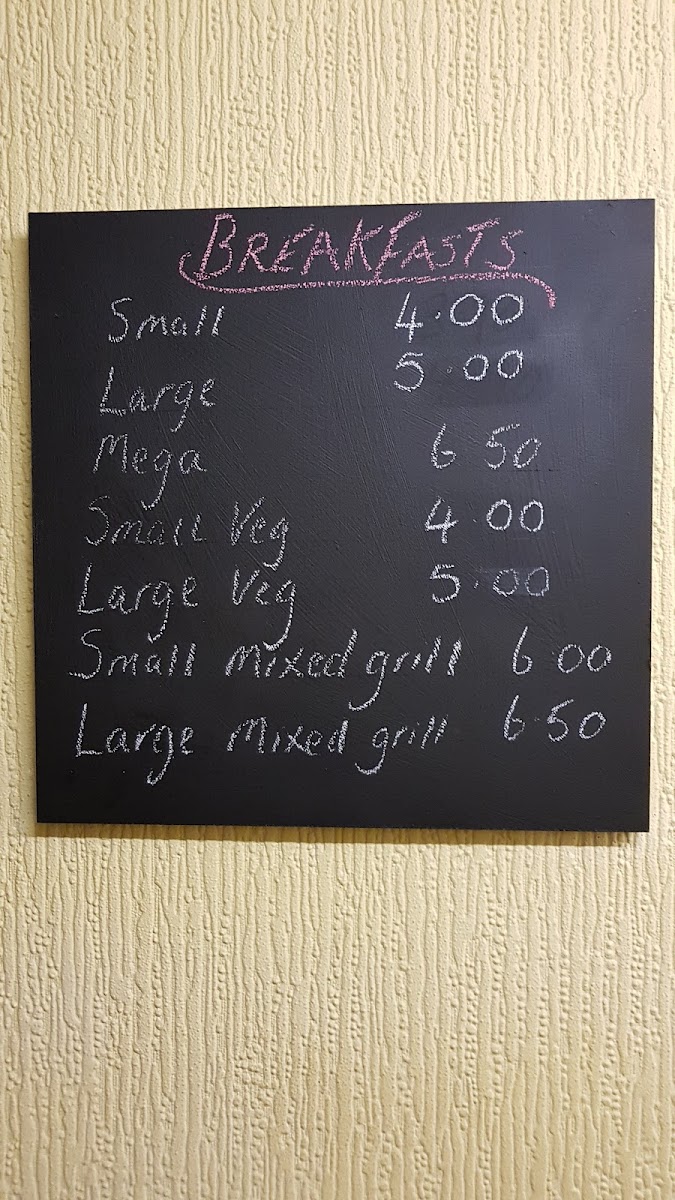 BREAKFASTS
Small 4.00
Large 5.00
Mega 6 50
Small Veg 4.00
Large Veg 5.00
Small Mixed grill 6 00
Large Mixed grill 6.50